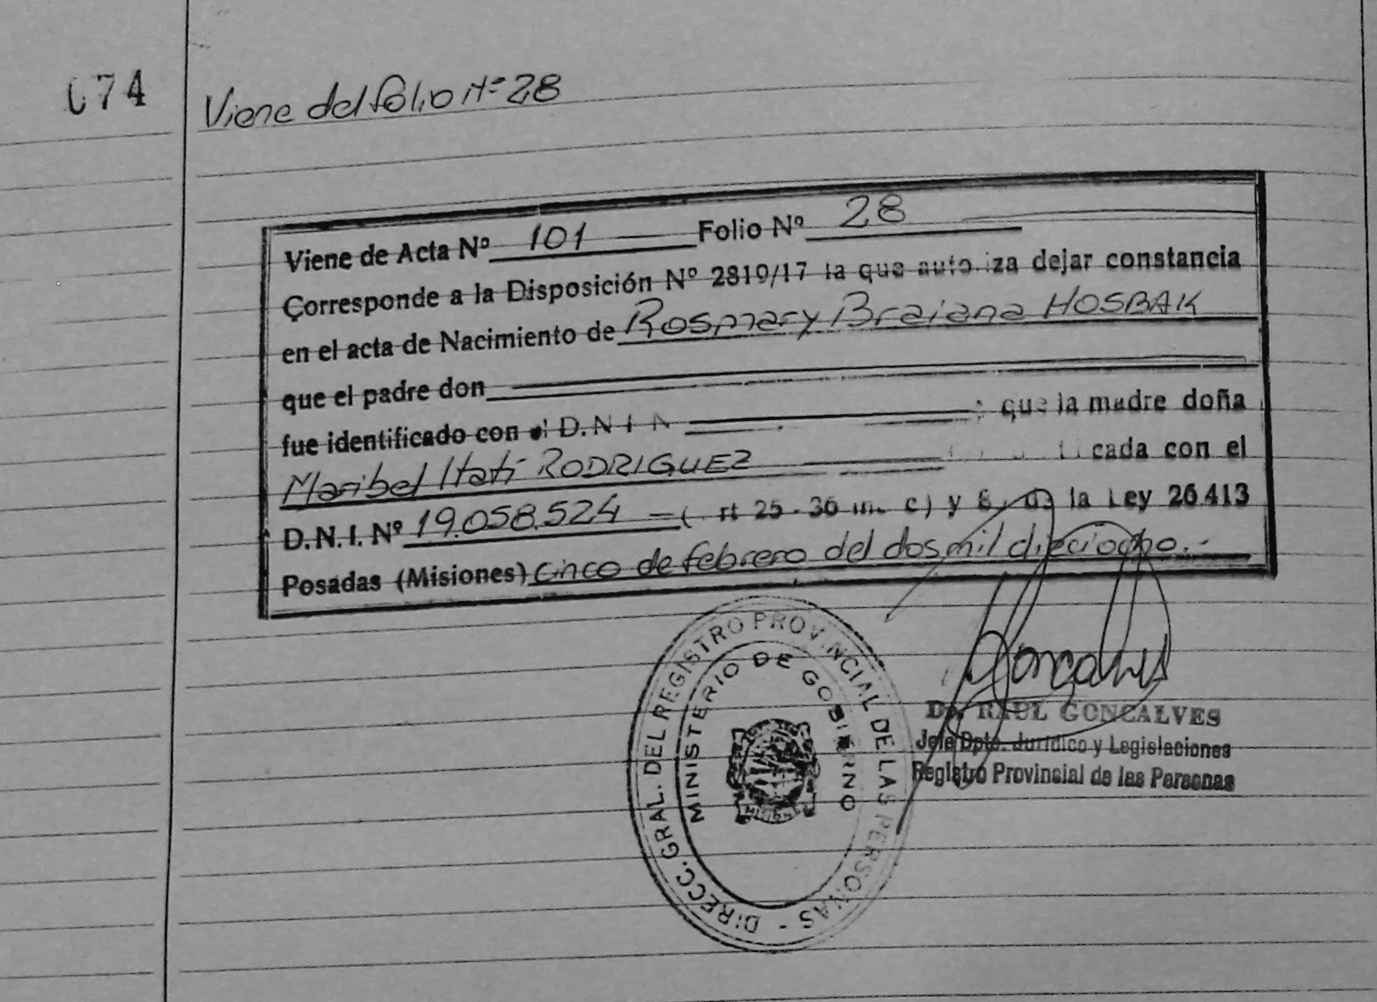 074
Viene del folio Nº 28
Viene de Acta Nº 101 Folio Nº 28
Corresponde a la Disposición Nº 2819/17 la que autoriza dejar constancia
en el acta de Nacimiento de Rosmary Braiana HOSBAK
que el padre don
fue identificado con el D.N.I. N
; que la madre doña
Maribel Itatí RODRIGUEZ cada con el
D.N.I. Nº 19.058.524 - ( rt 25 - 36 in. c) y la Ley 26.413
Posadas (Misiones) cinco de febrero del dos mil dieciocho.-
DIRECC. GRAL. DEL REGISTRO PROVINCIAL DE LAS PERSONAS -
MINISTERIO DE GOBIERNO
MISIONES
Gonçalves
Dr. RAUL GONCALVES
Jefe Dpto. Jurídico y Legislaciones
Registro Provincial de las Personas